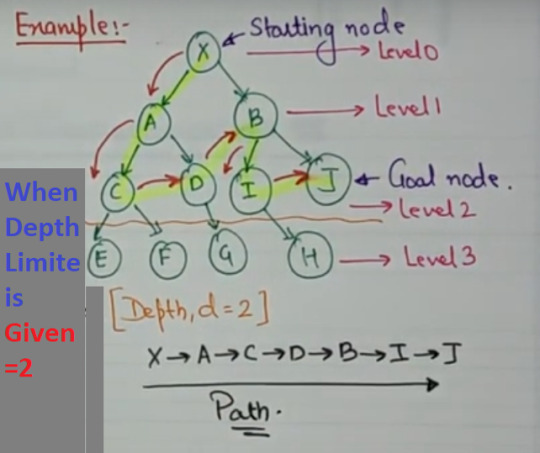 Example:-
Starting node
X
Level 0
A
B
Level 1
C
D
I
J
Goal node.
Level 2
E
F
G
H
Level 3
When
Depth
Limite
is
Given
=2
[Depth, d=2]
X→A→C→D→B→I→J
Path.